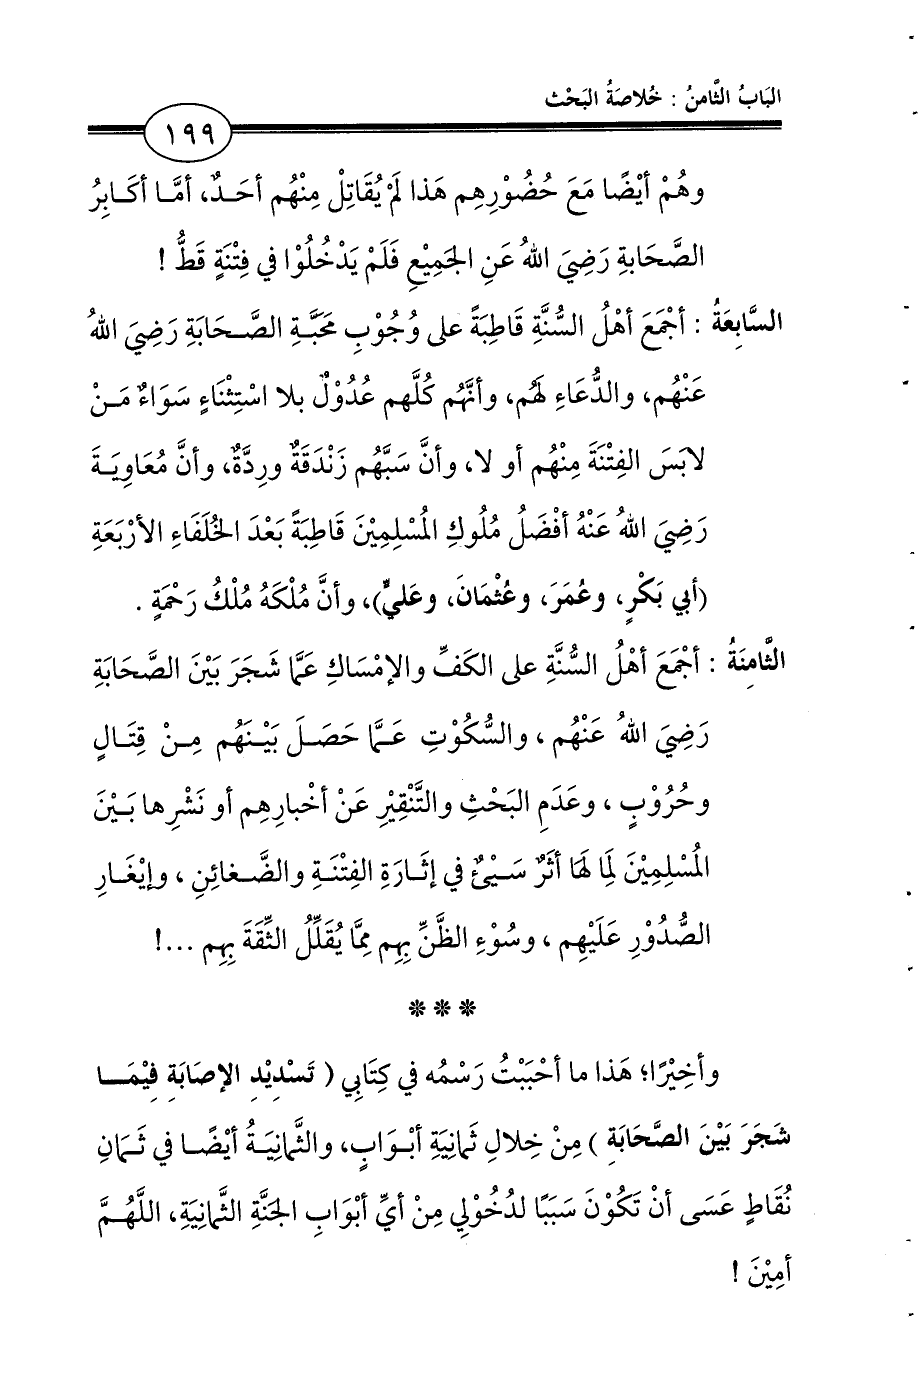 البَابُ الثَّامنُ : خُلاصَةُ البَحْث
١٩٩
وهُمْ أيْضًا مَعَ حُضُوْرِهِم هَذا لَمْ يُقَاتِلْ مِنْهُم أحَدٌ، أمَّا أكَابِرُ
الصَّحَابةِ رَضِيَ اللهُ عَنِ الجَمِيْعِ فَلَمْ يَدْخُلُوْا في فِتْنَةٍ قَطُّ !
السَّابِعَةُ : أجْمَعَ أهْلُ السُّنَّةِ قَاطِبَةً على وُجُوْبِ مَحَبَّةِ الصَّحَابَةِ رَضِيَ اللهُ
عَنْهُم، والدُّعَاءِ لَهُم، وأنَّهُم كُلَّهم عُدُوْلٌ بلا اسْتِثْنَاءٍ سَوَاءٌ مَنْ
لابَسَ الفِتْنَةَ مِنْهُم أو لا، وأنَّ سَبَّهُم زَنْدَقَةٌ ورِدَّةٌ، وأنَّ مُعَاوِيَةَ
رَضِيَ اللهُ عَنْهُ أفْضَلُ مُلُوكِ المُسْلِمِيْنَ قَاطِبَةً بَعْدَ الخُلَفَاءِ الأرْبَعَةِ
(أبي بَكْرٍ، وعُمَرَ، وعُثْمَانَ، وعَليٍّ)، وأنَّ مُلْكَهُ مُلْكُ رَحْمَةٍ .
الثَّامِنَةُ : أجْمَعَ أهْلُ السُّنَّةِ على الكَفِّ والإمْسَاكِ عَمَّا شَجَرَ بَيْنَ الصَّحَابَةِ
رَضِيَ اللهُ عَنْهُم ، والسُّكُوْتِ عَمَّا حَصَلَ بَيْنَهُم مِنْ قِتَالٍ
وحُرُوْبٍ ، وعَدَمِ البَحْثِ والتَّنْقِيْرِ عَنْ أخْبارِهِم أو نَشْرِها بَيْنَ
المُسْلِمِيْنَ لِمَا لهَا أثَرٌ سَيْئٌ في إثَارَةِ الفِتْنَةِ والضَّغائنِ ، وإيْغَارِ
الصُّدُوْرِ عَلَيْهِم ، وسُوْءِ الظَّنِّ بِهِم مِمَّا يُقَلِّلُ الثِّقَةَ بِهِم ...!
* * *
وأخِيْرًا؛ هَذا ما أحْبَبْتُ رَسْمُه في كِتَابي ( تَسْدِيْدِ الإصَابَةِ فِيْمَا
شَجَرَ بَيْنَ الصَّحَابَةِ ) مِنْ خِلالِ ثَمانِيَةِ أبْوَابٍ، والثَّمانِيَةُ أيْضًا في ثَمَانِ
نُقَاطٍ عَسَى أنْ تَكُوْنَ سَبَبًا لدُخُوْلي مِنْ أيِّ أبْوَابِ الجَنَّةِ الثَّمانِيَةِ، اللَّهُمَّ
أمِيْنَ !